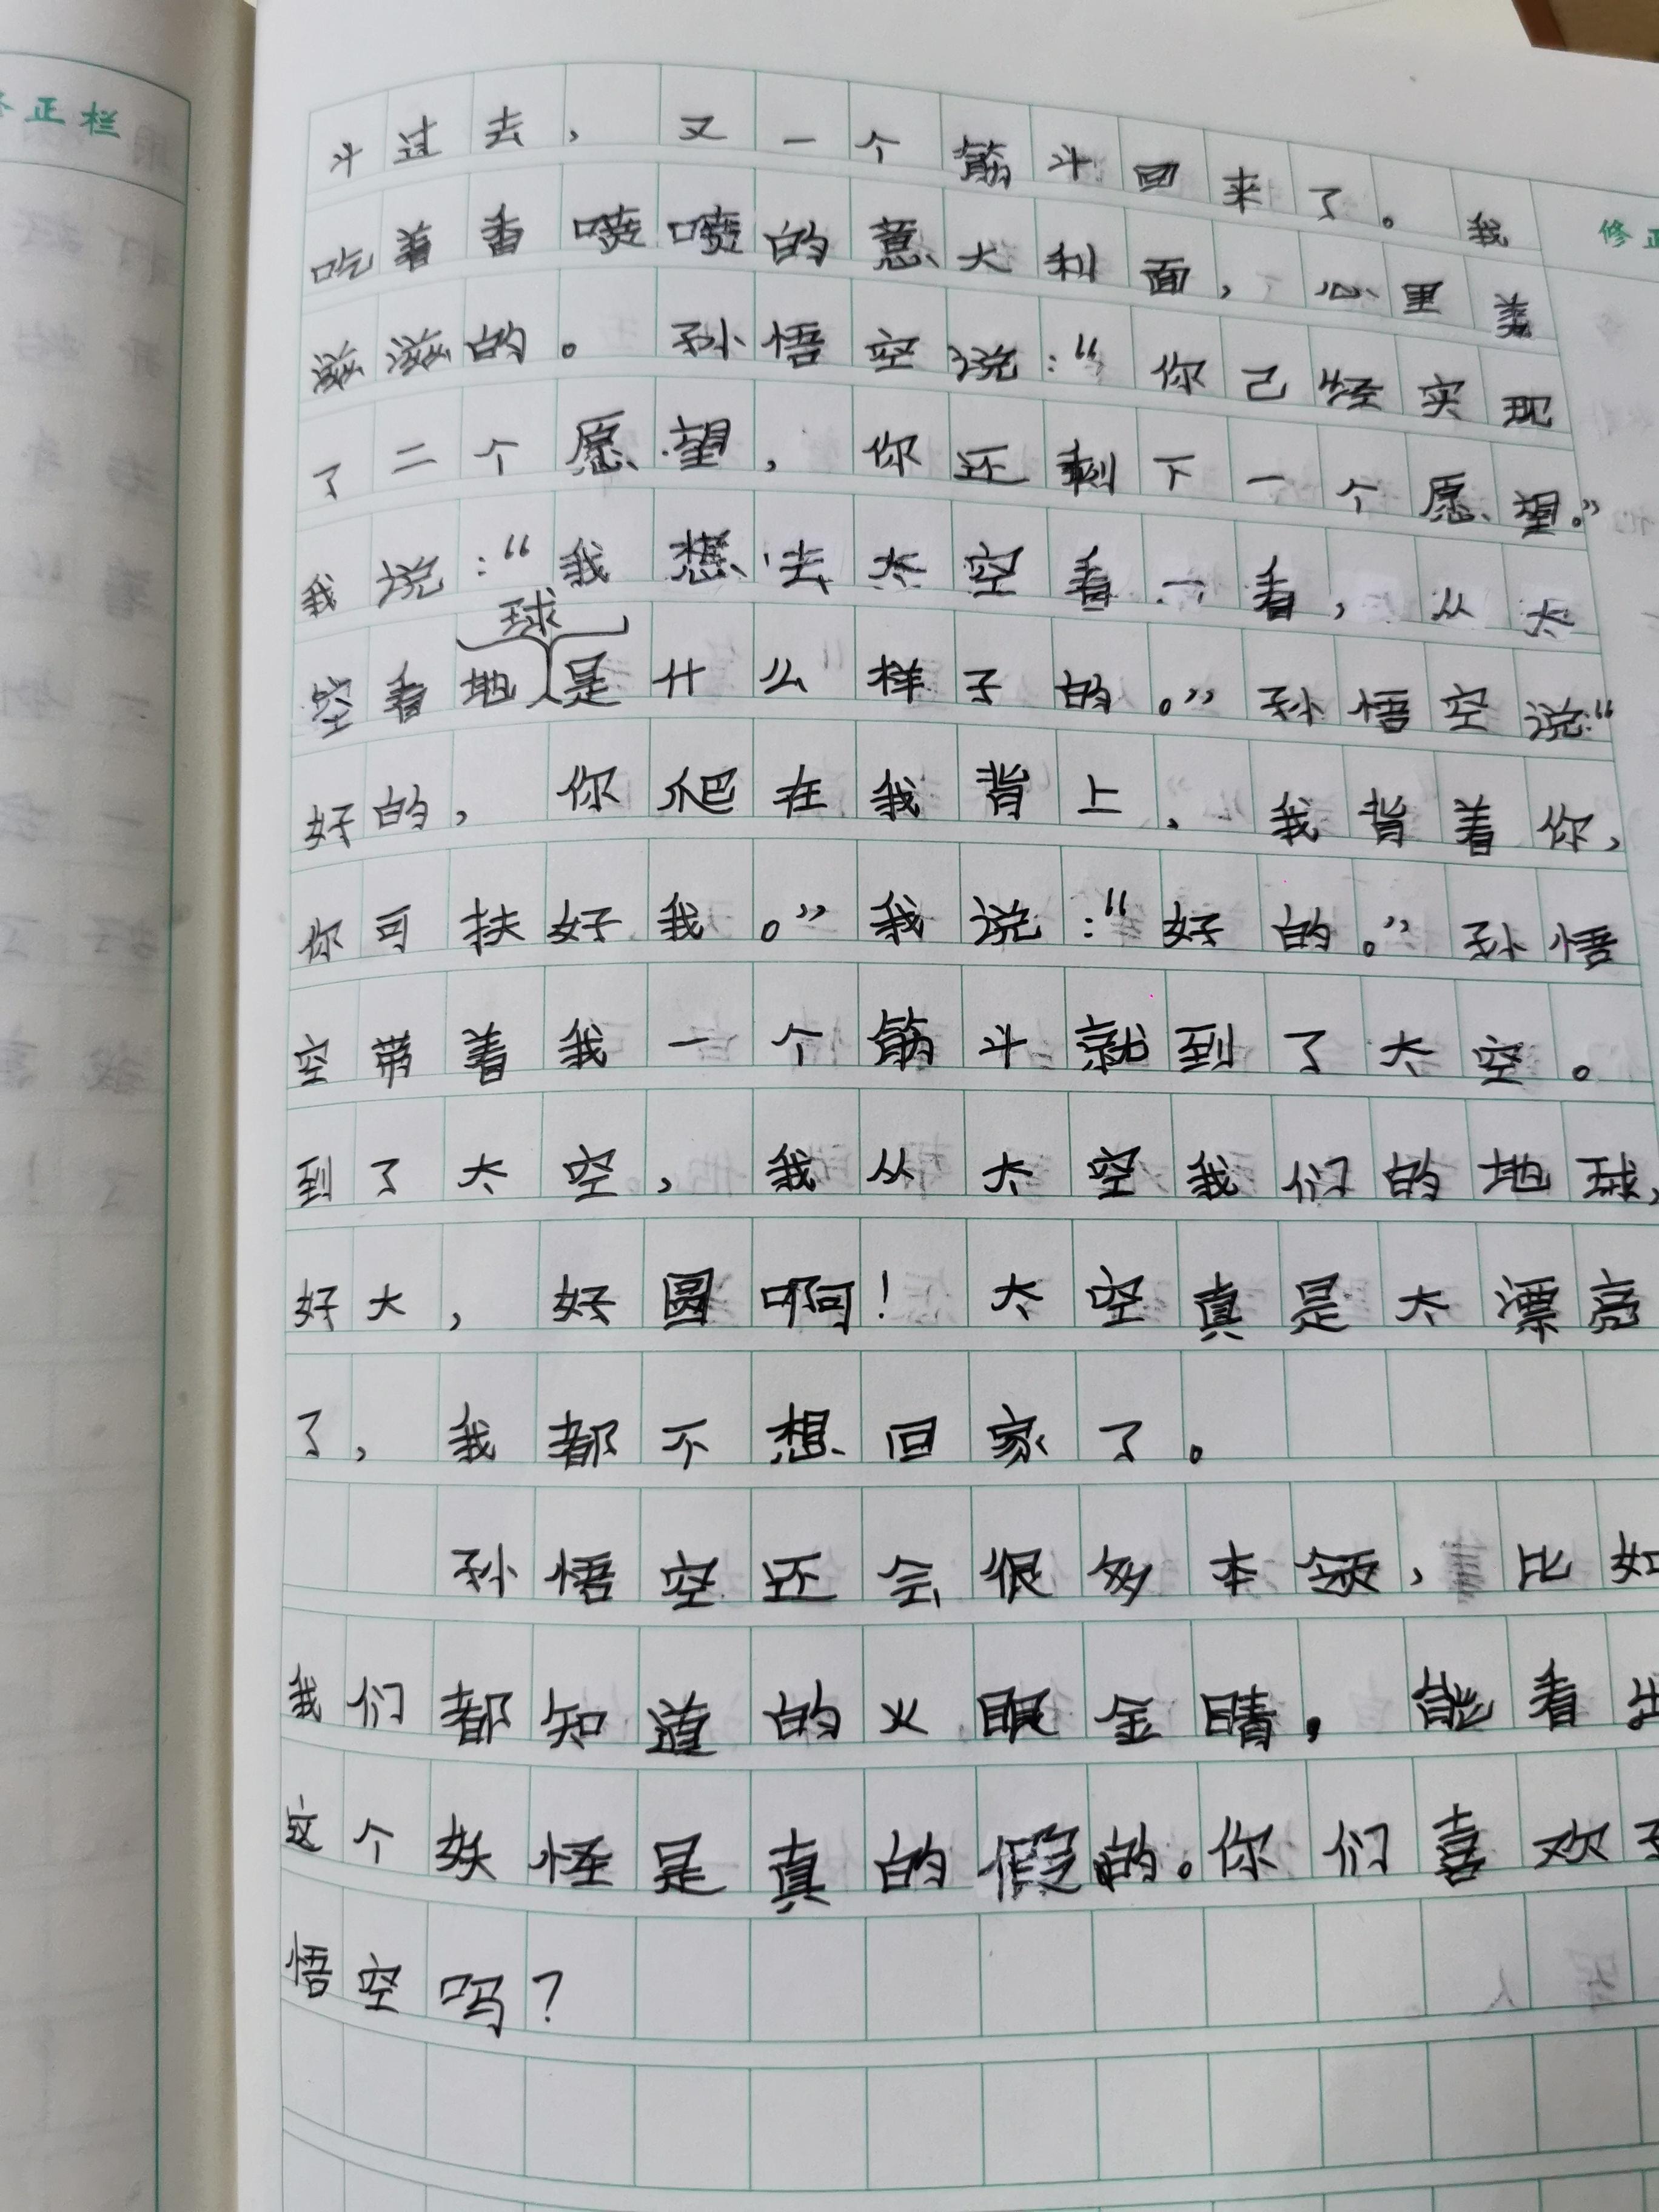 修正栏
斗过去，又一个筋斗回来了。我
修正
吃着香喷喷的意大利面，心里美
滋滋的。孙悟空说：“你己经实现
了二个愿望，你还剩下一个愿望。”
我说：“我想去太空看一看，从太
空看地球是什么样子的。”孙悟空说：“
好的，你爬在我背上，我背着你，
你可扶好我。”我说：“好的。”孙悟
空带着我一个筋斗就到了太空。
到了太空，我从太空我们的地球，
好大，好圆啊！太空真是太漂亮
了，我都不想回家了。
孙悟空还会很多本领，比如
我们都知道的火眼金睛，能看出
这个妖怪是真的假的。你们喜欢孙
悟空吗？